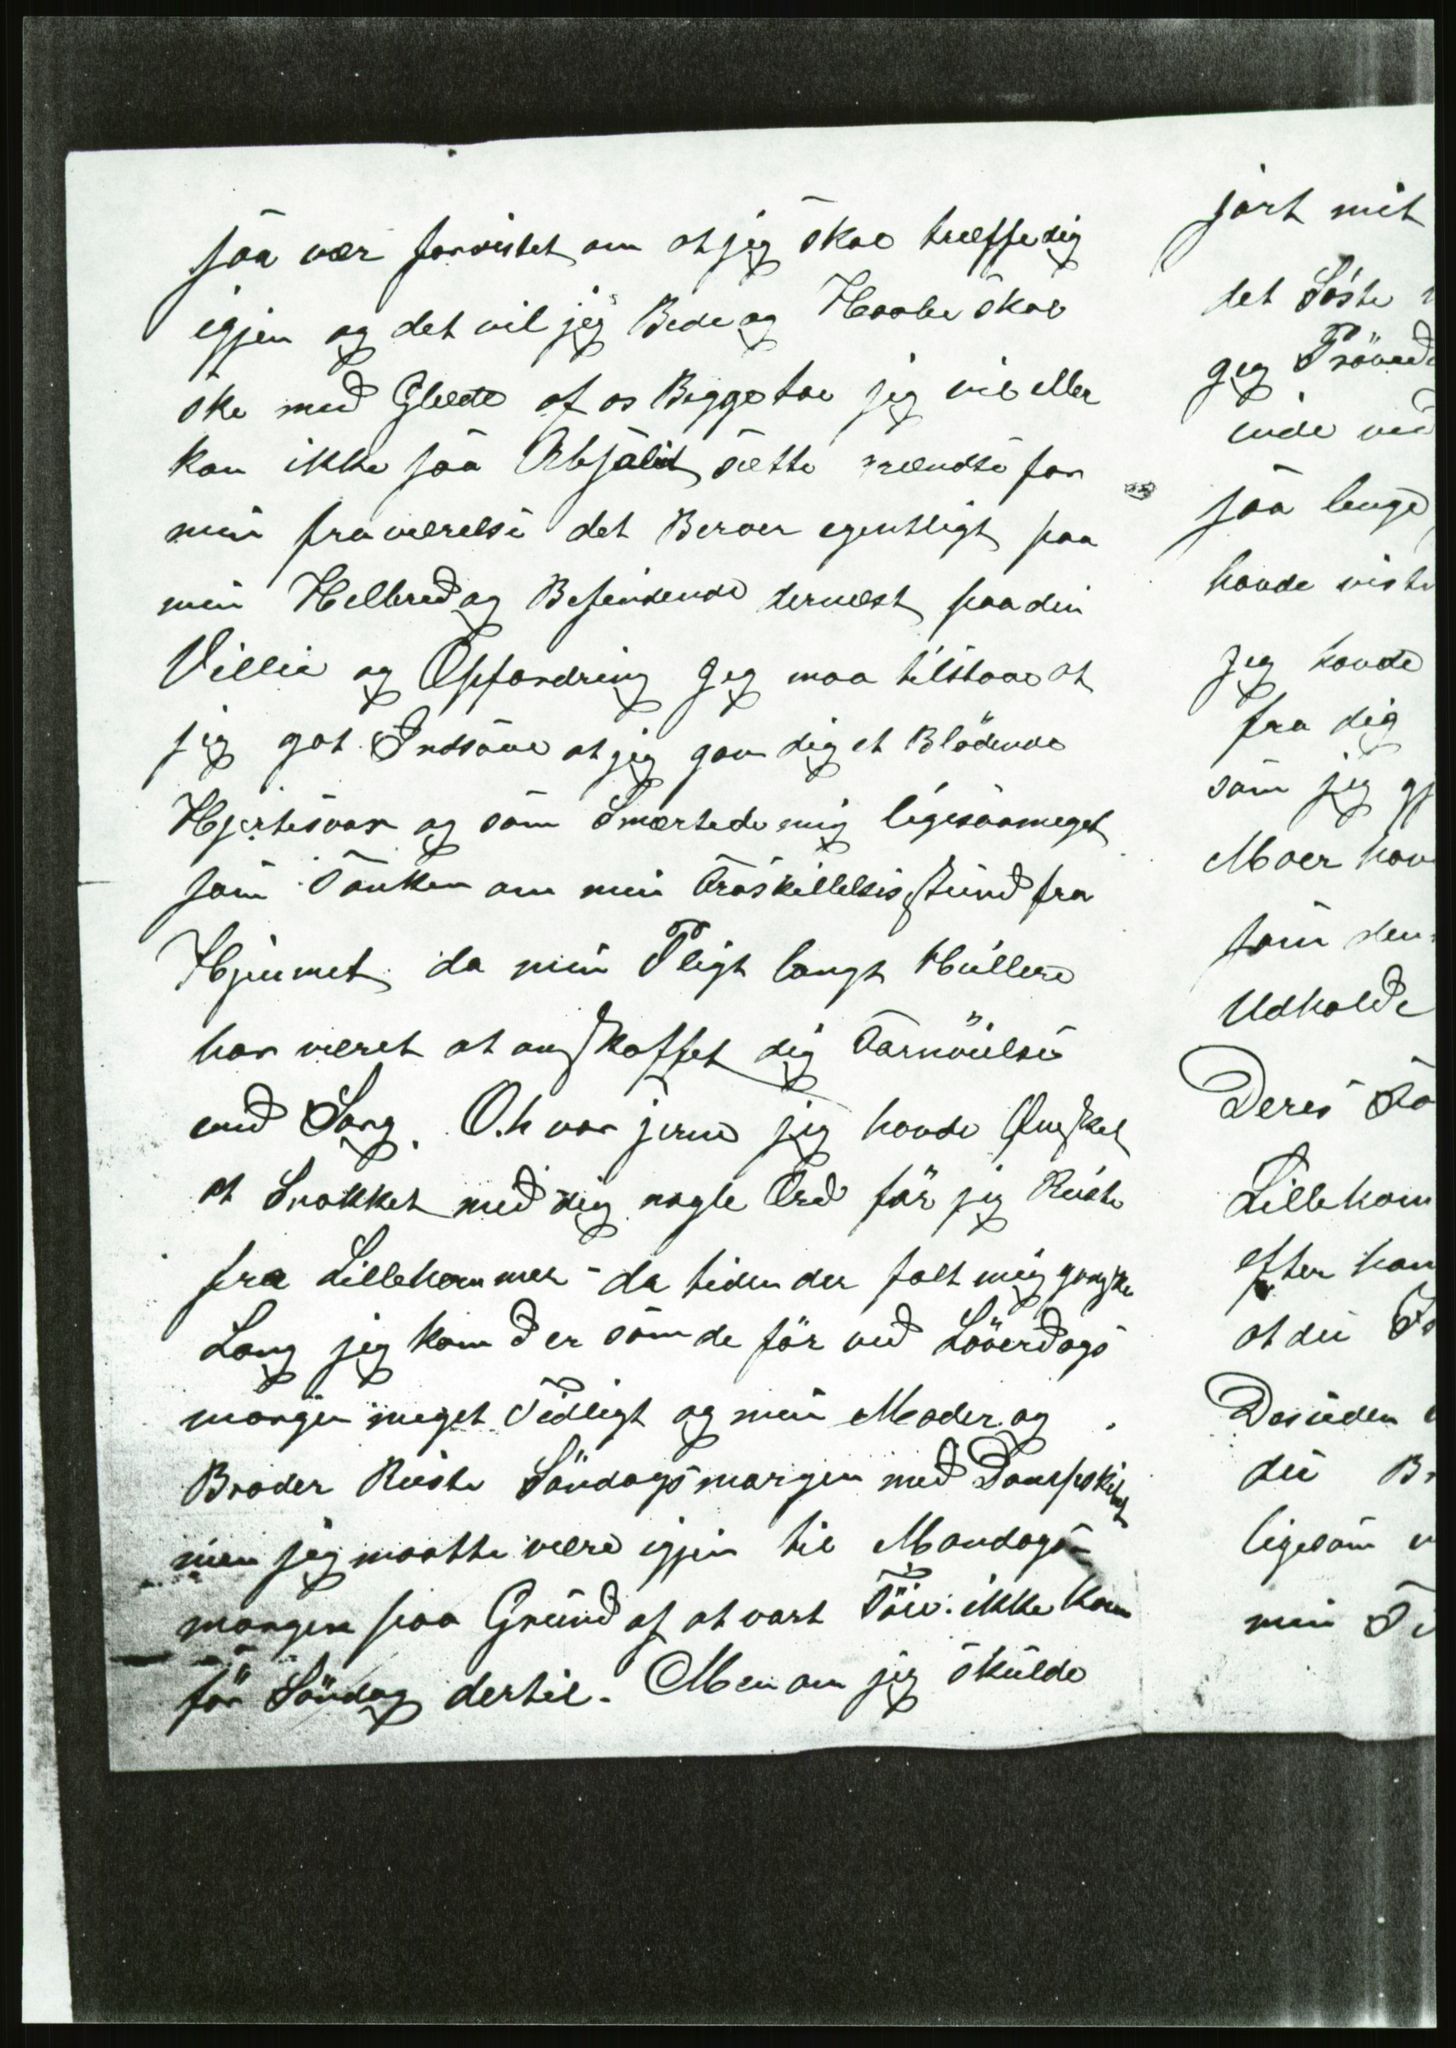 saa vær forvistet om at jeg skal træffe dig
igjen og det vil jeg Bede og Haabe skal
ske med Glæde af os Begge to jeg vil eller
kan ikke saa Absalut sætte rændse for
min fraværelse det Berver egentligt paa
min Helbred og Befindende dernæst paa din
Villie og Opfordring Jeg maa tilstaae at
jeg got Indsaae at jeg gav dig et Blødende
Hjertesvar og som Smærtede mig ligesaameget
som Tanken om min Fraskillelsis stund fra
Hjemmet da min Pligt langt Hullere
har været at anskaffet dig Fornöielse
med Sang. O.h vor jerne jeg havde Ønsket
at Snakket med dig nogle Ord før jeg Reiste
fra Lillehammer - da tiden der falt mig ganske
Lang jeg kom der som de før ved Löverdags
morgen meget Tidligt og min Moder og
Broder Reiste Söndags morgen med Dampskibet
men jeg maatte være igjen til Mandags-
morgen paa Grund af at vort Töie ikke kom
før Söndag dertil. Men om jeg skulde
jort mit
det Siste
Jeg Pröved
inde ved
saa lenge
havde viste
Jeg havde
fra dig
som jeg gj
Moer hav
som den
Udholde
Deres Fo
Lilleham
efter han
at du
Desuden
du Br
ligesom
min